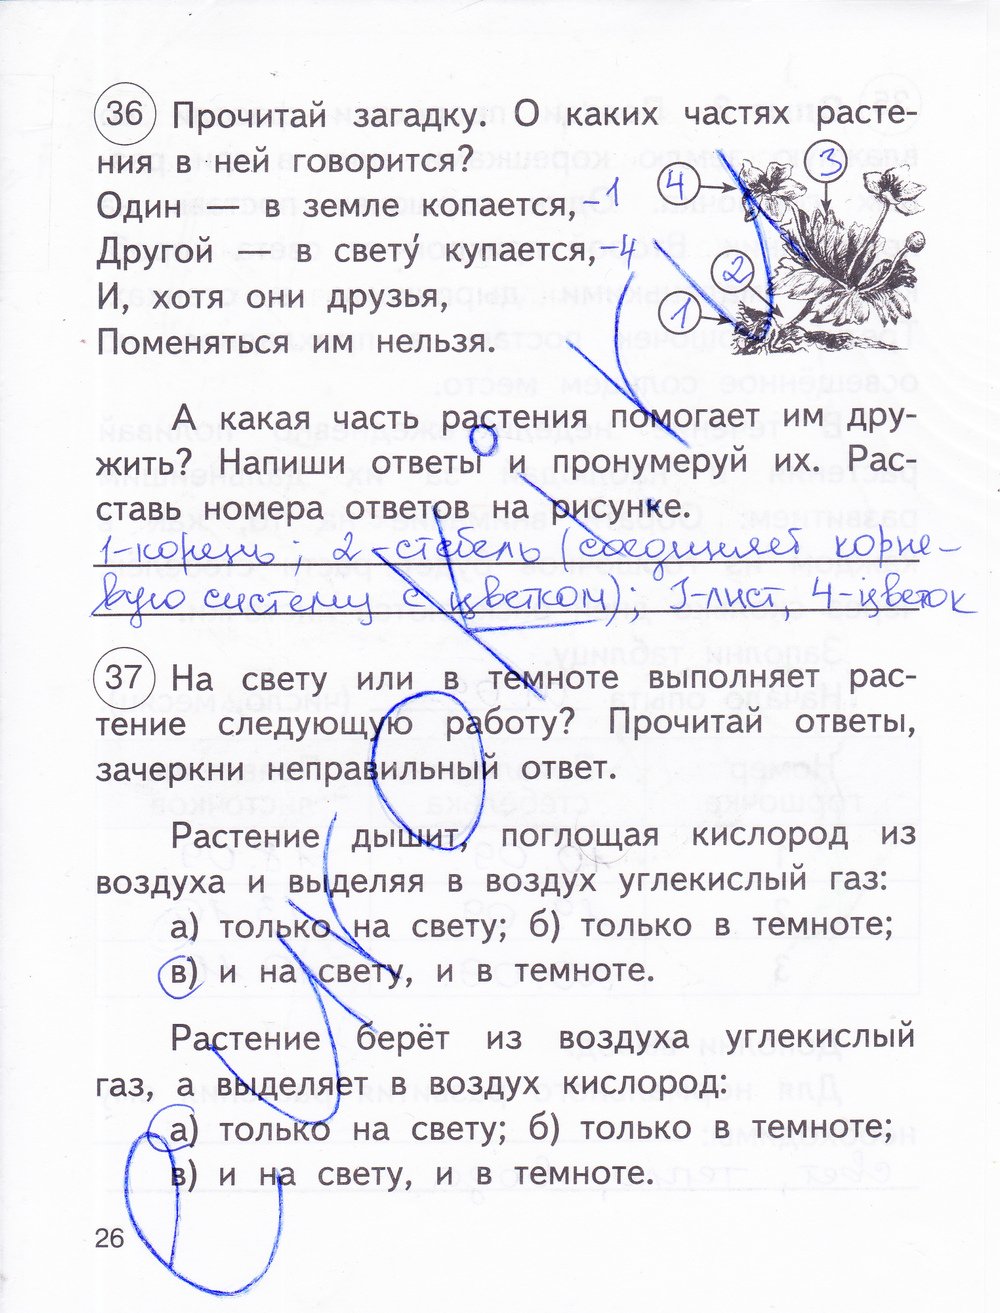 36 Прочитай загадку. О каких частях расте-
ния в ней говорится?
Один — в земле копается, -1
Другой — в свету́ купается, -4
И, хотя они друзья,
Поменяться им нельзя.
4
3
2
1
А какая часть растения помогает им дру-
жить? Напиши ответы и пронумеруй их. Рас-
ставь номера ответов на рисунке.
1-корень; 2 - стебель (соединяет корне-
вую систему с цветком); 3-лист, 4-цветок
37 На свету или в темноте выполняет рас-
тение следующую работу? Прочитай ответы,
зачеркни неправильный ответ.
Растение дышит, поглощая кислород из
воздуха и выделяя в воздух углекислый газ:
а) только на свету; б) только в темноте;
в) и на свету, и в темноте.
Растение берёт из воздуха углекислый
газ, а выделяет в воздух кислород:
а) только на свету; б) только в темноте;
в) и на свету, и в темноте.
26